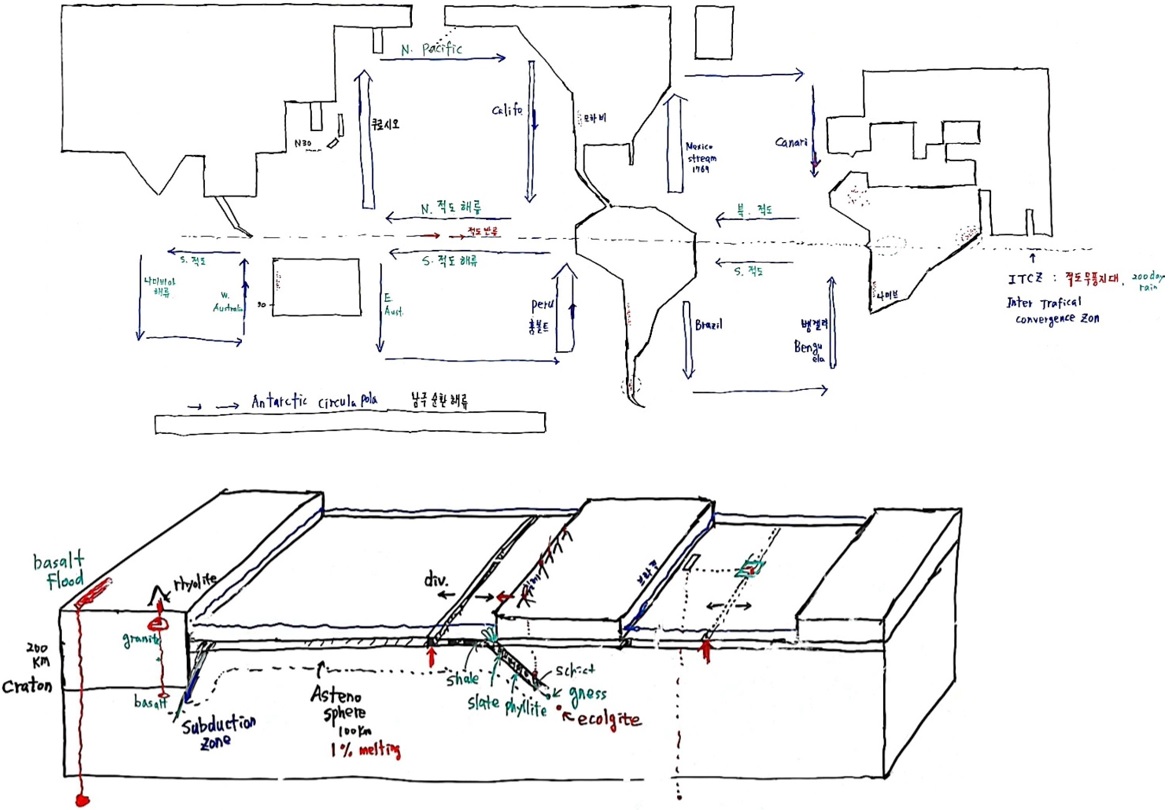 N. Pacific
쿠로시오
N30
Calif.
모하비
Mexico
stream
1769
Canari
N. 적도 해류
적도반류
S. 적도 해류
북. 적도
S. 적도
S. 적도
W.
Australia
30
E.
Aust.
peru
훔볼트
Brazil
벵겔라
Bengu
ela
나미브
ITCZ : 적도무풍지대, 200 day
rain
Inter Trafical
convergence Zon
Antarctic circula pola 남극 순환 해류
basalt
Flood
rhyolite
granite
basalt
200
KM
Craton
Subduction
zone
Asteno
sphere
100km
1% melting
div.
shale
slate
phyllite
schist
gness
ecolgite